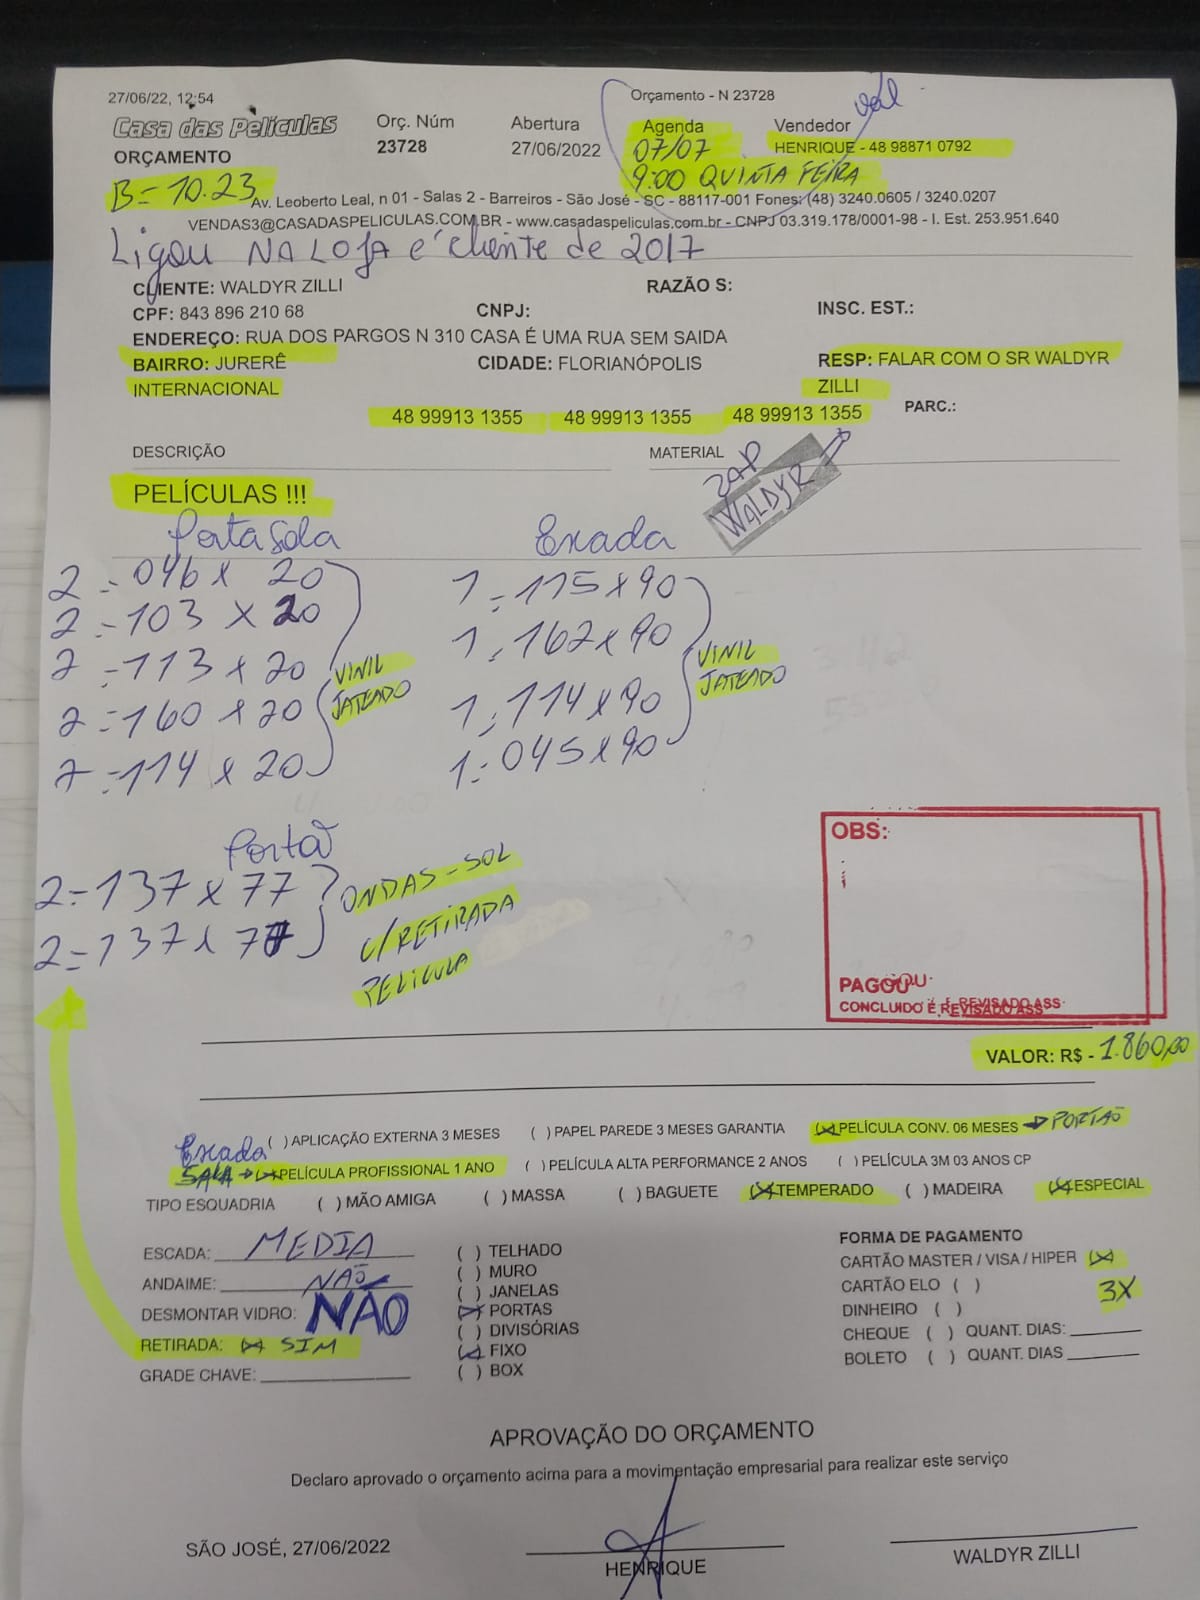 27/06/22, 12:54 Orçamento - N 23728
Val
Casa das Películas Orç. Núm Abertura Agenda Vendedor
ORÇAMENTO 23728 27/06/2022 07/07 HENRIQUE - 48 98871 0792
B= 10.23 9:00 QUINTA FEIRA
Av. Leoberto Leal, n 01 - Salas 2 - Barreiros - São José - SC - 88117-001 Fones: (48) 3240.0605 / 3240.0207
VENDAS3@CASADASPELICULAS.COM.BR - www.casadaspeliculas.com.br - CNPJ 03.319.178/0001-98 - I. Est. 253.951.640
Ligou NA LOJA é cliente de 2017
CLIENTE: WALDYR ZILLI RAZÃO S:
CPF: 843 896 210 68 CNPJ: INSC. EST.:
ENDEREÇO: RUA DOS PARGOS N 310 CASA É UMA RUA SEM SAIDA
BAIRRO: JURERÊ CIDADE: FLORIANÓPOLIS RESP: FALAR COM O SR WALDYR
INTERNACIONAL ZILLI
48 99913 1355 48 99913 1355 48 99913 1355 PARC.:
DESCRIÇÃO MATERIAL
ZAP
WALDYR
PELÍCULAS !!!
Porta Sala Escada
2 = 046 x 20 1 = 115 x 90
2 = 103 x 20 1 = 162 x 90
2 = 113 x 20 VINIL 1 = 114 x 90 VINIL
2 = 160 x 20 JATEADO 1 = 045 x 90 JATEADO
2 = 114 x 20
Portão
2 = 137 x 77 ONDAS - SOL
2 = 137 x 77 C/ RETIRADA
PELÍCULA
OBS:
PAGOU
CONCLUIDO E REVISADO ASS
VALOR: R$ - 1.860,00
Escada ( ) APLICAÇÃO EXTERNA 3 MESES ( ) PAPEL PAREDE 3 MESES GARANTIA (X) PELÍCULA CONV. 06 MESES → PORTÃO
SALA → (X) PELÍCULA PROFISSIONAL 1 ANO ( ) PELÍCULA ALTA PERFORMANCE 2 ANOS ( ) PELÍCULA 3M 03 ANOS CP
TIPO ESQUADRIA ( ) MÃO AMIGA ( ) MASSA ( ) BAGUETE (X) TEMPERADO ( ) MADEIRA (X) ESPECIAL
ESCADA: MEDIA
ANDAIME: NÃO
DESMONTAR VIDRO: NÃO
RETIRADA: (X) SIM
GRADE CHAVE:
( ) TELHADO
( ) MURO
( ) JANELAS
(X) PORTAS
( ) DIVISÓRIAS
(X) FIXO
( ) BOX
FORMA DE PAGAMENTO
CARTÃO MASTER / VISA / HIPER (X)
CARTÃO ELO ( ) 3X
DINHEIRO ( )
CHEQUE ( ) QUANT. DIAS:
BOLETO ( ) QUANT. DIAS
APROVAÇÃO DO ORÇAMENTO
Declaro aprovado o orçamento acima para a movimentação empresarial para realizar este serviço
SÃO JOSÉ, 27/06/2022
HENRIQUE WALDYR ZILLI